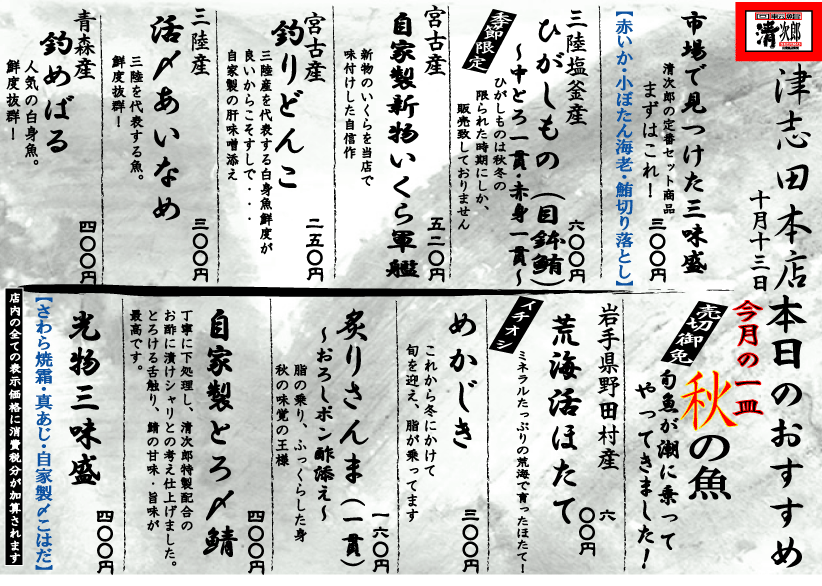 清次郎
津志田本店
十月十三日
本日のおすすめ
市場で見つけた三味盛
清次郎の定番セット商品
まずはこれ！
三〇〇円
【赤いか・小ぼたん海老・鮪切り落とし】
三陸塩釜産
ひがしもの（目鉢鮪）
〜中とろ一貫・赤身一貫〜
六〇〇円
季節限定
ひがしものは秋冬の
限られた時期にしか、
販売致しておりません
宮古産
自家製新物いくら軍艦
新物のいくらを当店で
味付けした自信作
五二〇円
宮古産
釣りどんこ
三陸産を代表する白身魚鮮度が
良いからこそすしで・・・
自家製の肝味噌添え
二五〇円
三陸産
活〆あいなめ
三陸を代表する魚。
鮮度抜群！
三〇〇円
青森産
釣めばる
人気の白身魚。
鮮度抜群！
四〇〇円
今月の一皿
売切御免
秋の魚
旬魚が潮に乗って
やってきました！
岩手県野田村産
荒海活ほたて
六〇〇円
イチオシ
ミネラルたっぷりの荒海で育ったほたて！
めかじき
これから冬にかけて
旬を迎え、脂が乗ってます
三〇〇円
炙りさんま（一貫）
〜おろしポン酢添え〜
脂の乗り、ふっくらした身
秋の味覚の王様
一六〇円
自家製とろ〆鯖
丁寧に下処理し、清次郎特製配合の
お酢に漬けシャリとの考え仕上げました。
とろける舌触り、鯖の甘味・旨味が
最高です。
四〇〇円
光物三味盛
四〇〇円
【さわら焼霜・真あじ・自家製〆こはだ】
店内の全ての表示価格に消費税分が加算されます